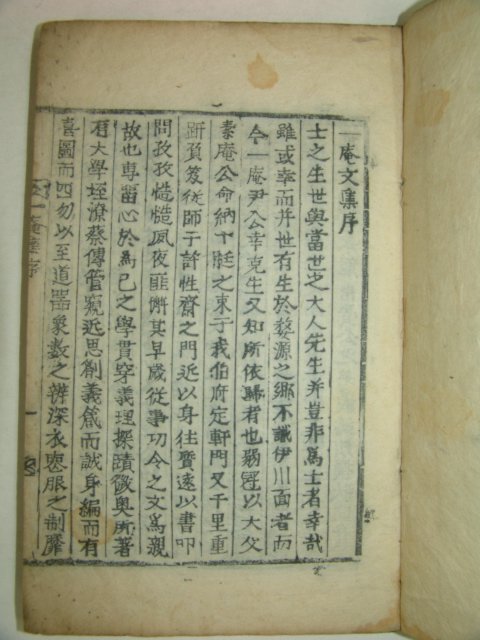 一庵文集序
士之生世與當世之大人先生并豈非爲士者幸哉
雖或幸而并世有生於婺源之鄕不識伊川面者而
今一庵尹公幸克生又知所依歸者也弱冠以大父
素庵公命納十脡之束于我伯府定軒門又千里重
趼負笈從師于許性齋之門近以身往質遠以書叩
問孜孜慥慥夙夜匪懈其早歲從事功令之文爲親
故也專留心於爲己之學貫穿義理探賾徵奧所著
有大學垤潦蔡傳管窺近思劄義箴而誠身編而有
喜圖而四勿以至道器象數之辨深衣喪服之制靡
一庵集序
一